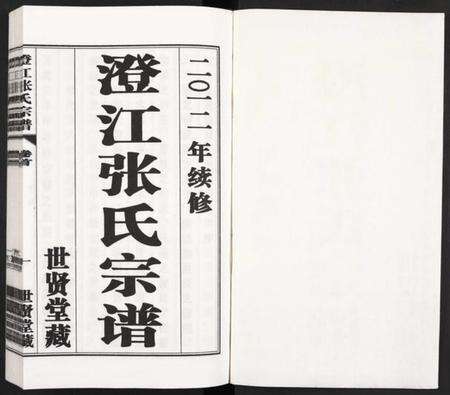 二〇一二年续修
澄江张氏宗谱
世贤堂藏
澄江张氏宗谱
卷首
一
世贤堂藏